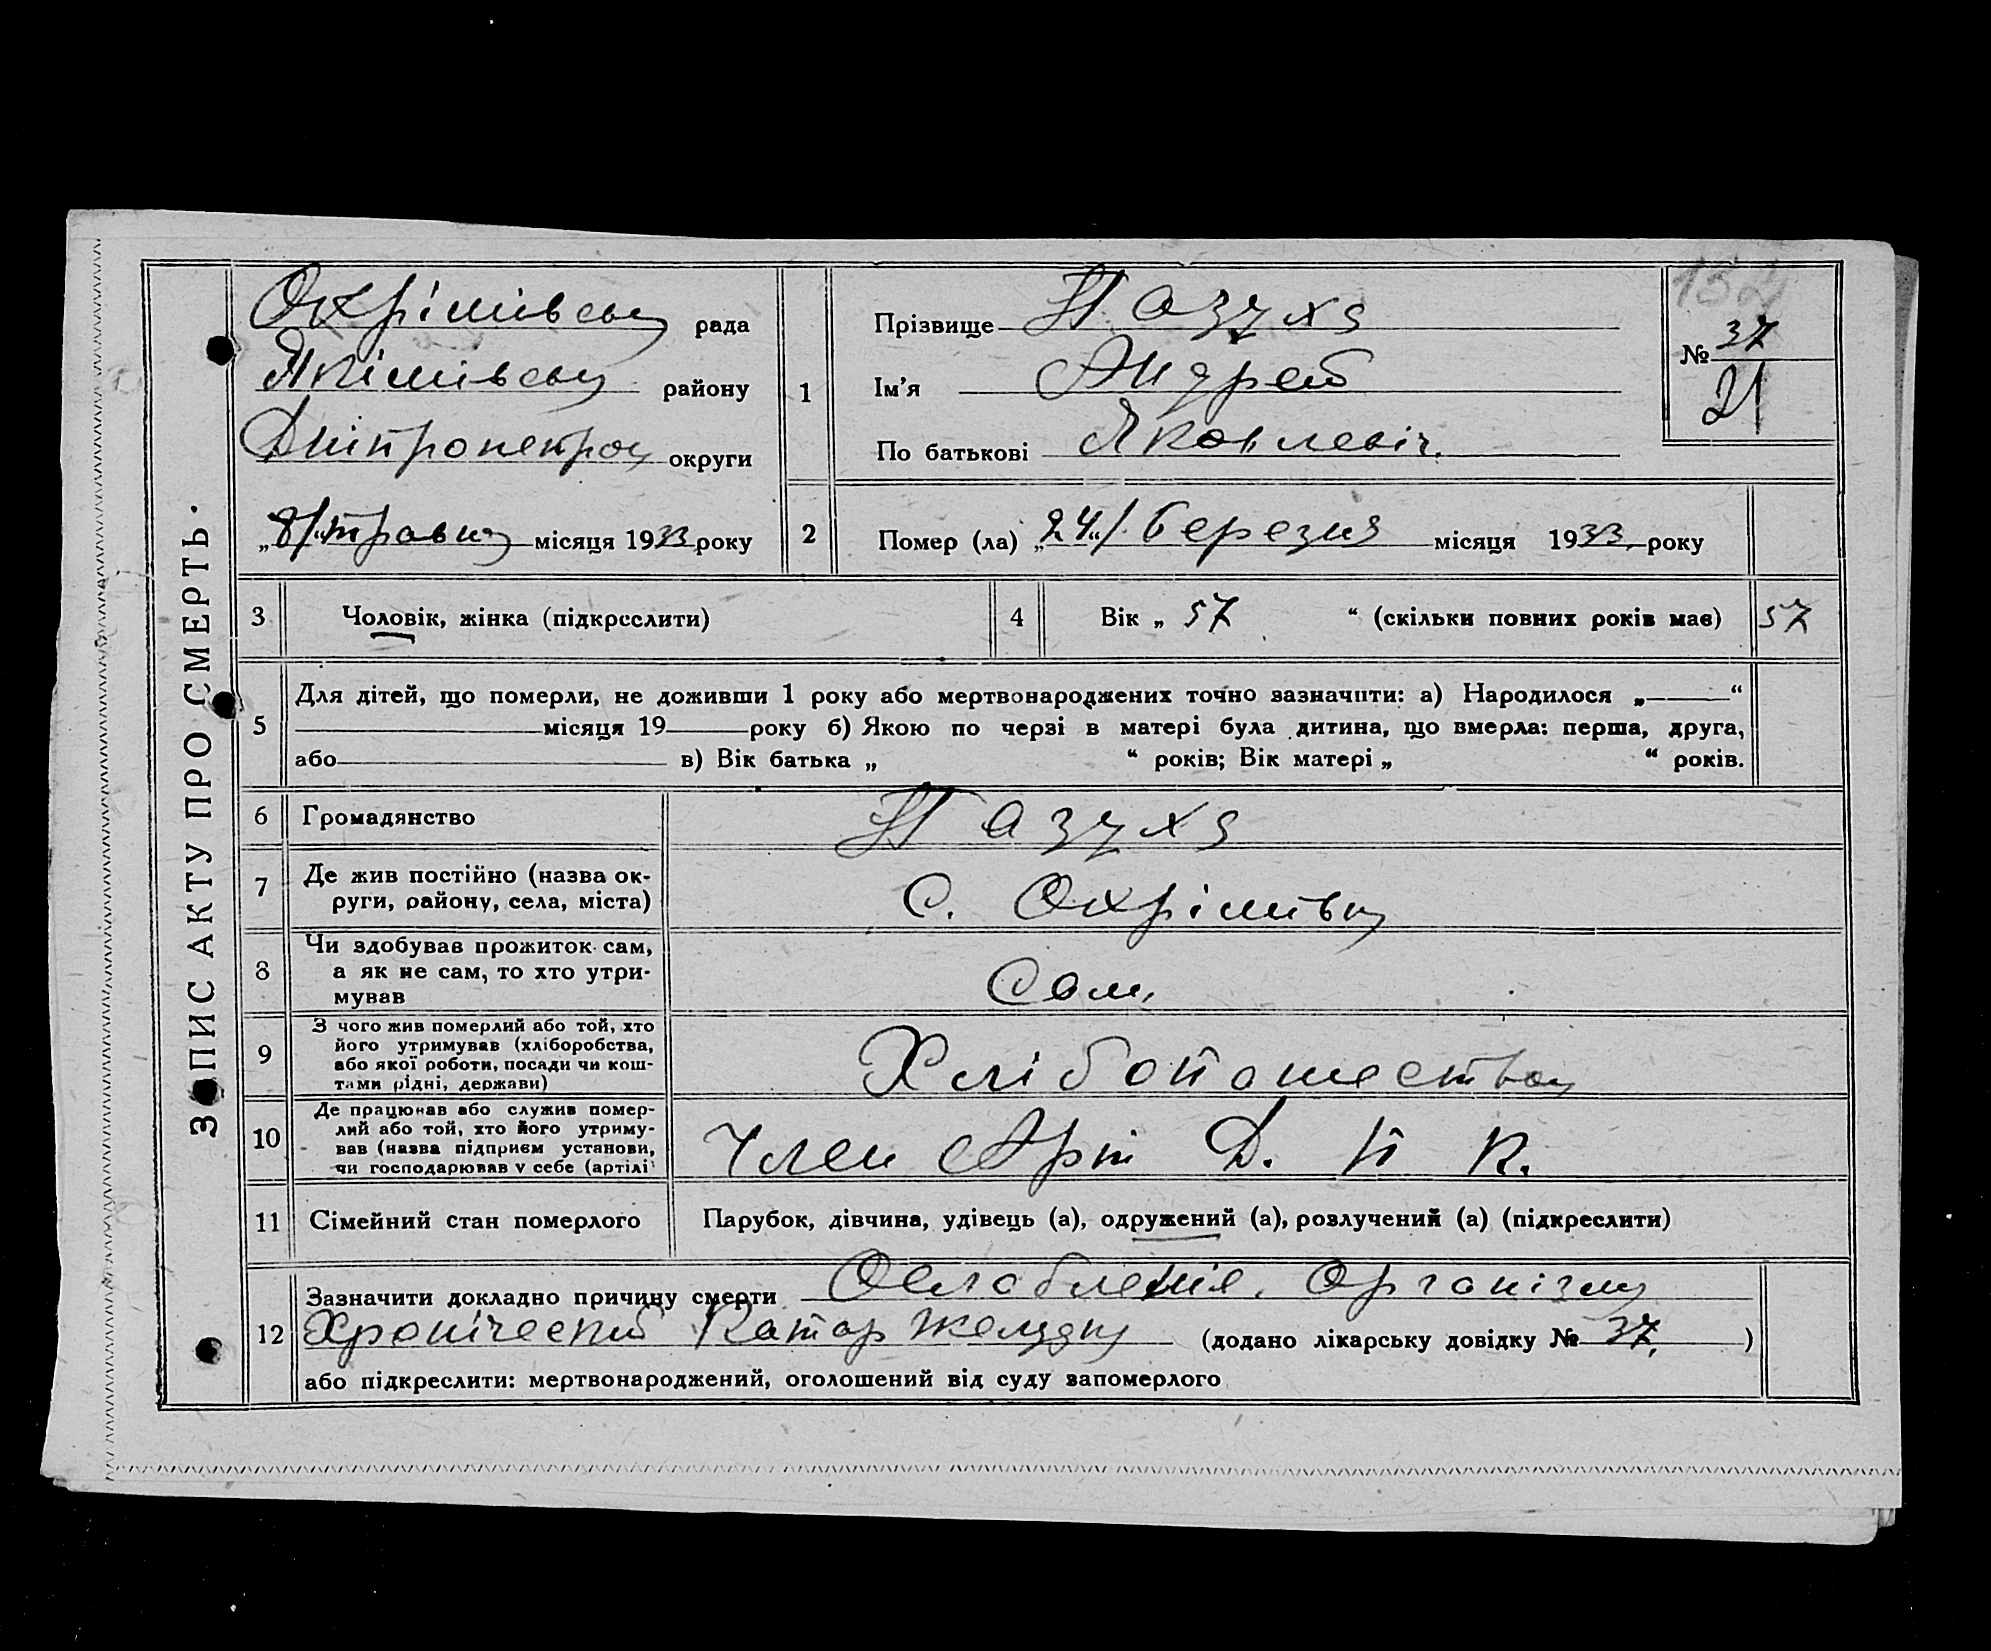 ЗАПИС АКТУ ПРО СМЕРТЬ.
Охрімівськ рада
Якімівськ району
Дніпропетро округи
„8/“ травня місяця 1933 року
1
Прізвище Пазуха
Ім'я Андрей
По батькові Яковлевіч.
№ 37
21
2
Помер (ла) „24“/ березня місяця 1933 року
3 Чоловік, жінка (підкреслити)
4 Вік „ 57 “ (скільки повних років має) 57
5 Для дітей, що померли, не доживши 1 року або мертвонароджених точно зазначити: а) Народилося „ “
місяця 19 року б) Якою по черзі в матері була дитина, що вмерла: перша, друга,
або в) Вік батька „ “ років; Вік матері „ “ років.
6 Громадянство Пазуха
7 Де жив постійно (назва ок-
руги, району, села, міста) С. Охрімівка
8 Чи здобував прожиток сам,
а як не сам, то хто утри-
мував Сам.
9 З чого жив померлий або той, хто
його утримував (хліборобства,
або якої роботи, посади чи кош-
тами рідні, держави) Хлібопашеством
10 Де працював або служив помер-
лий або той, хто його утриму-
вав (назва підприєм установи,
чи господарював у себе (артілі) Член Арт Д. П К.
11 Сімейний стан померлого Парубок, дівчина, удівець (а), одружений (а), розлучений (а) (підкреслити)
12 Зазначити докладно причину смерти Ослабленія. Організму
Хроніческий Катар Желудку (додано лікарську довідку № 37. )
або підкреслити: мертвонароджений, оголошений від суду запомерлого